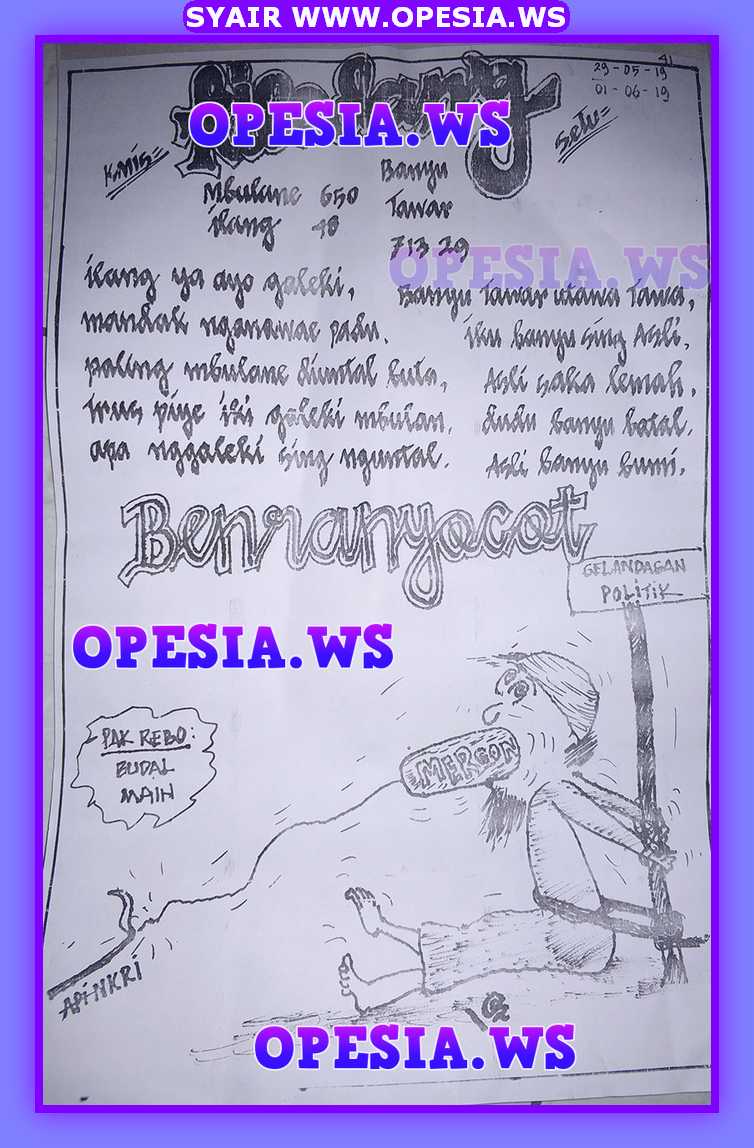 SYAIR WWW.OPESIA.WS
41
29-05-19
01-06-19
OPESIA.WS
Kmis=
Setu=
Mbulane 650
ilang 48
Banyu
Tawar
713 29
OPESIA.WS
ilang ya ayo galeki,
mandak nganawae padu.
paling mbulane diuntal buta,
trus piye iki galeki mbulan.
apa nggaleki sing nguntal.
Banyu tawar utawa tawa,
iku banyu sing Asli,
Asli saka lemah.
dudu banyu batal.
Asli banyu bumi.
Benranyocot
GELANDAGAN
POLITIK
OPESIA.WS
PAK REBO:
BUDAL
MAIN
MERCON
API NKRI
OPESIA.WS